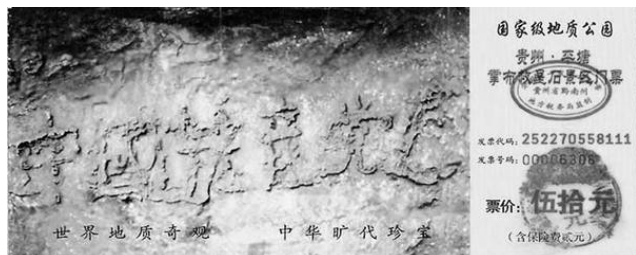 中国共産党亡
世界地质奇观 中华旷代珍宝
国家级地质公园
贵州·平塘
掌布救星石景区门票
贵州省黔南州
地方税务局监制
发票代码: 252270558111
发票号码:
票价: 伍拾元
(含保险费贰元)